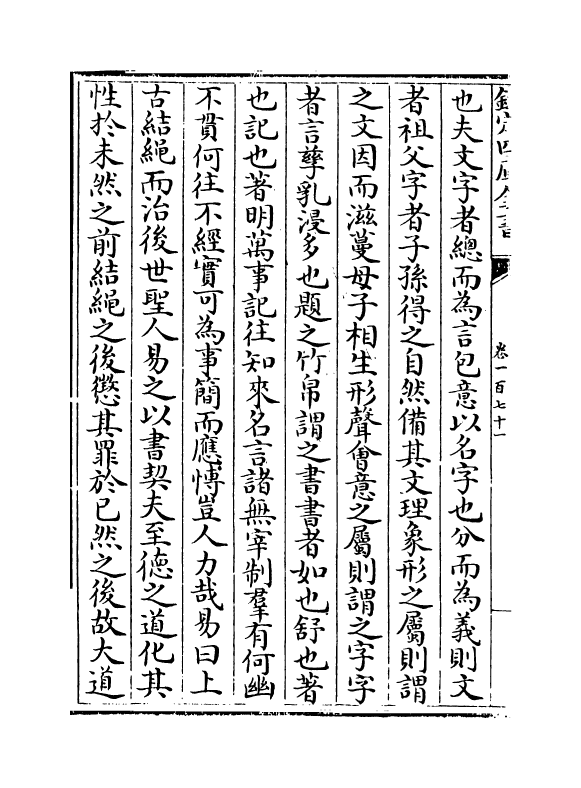 欽定四庫全書
卷一百七十一
也夫文字者總而為言包意以名字也分而為義則文
者祖父字者子孫得之自然備其文理象形之屬則謂
之文因而滋蔓母子相生形聲會意之屬則謂之字字
者言孳乳浸多也題之竹帛謂之書書者如也舒也著
也記也著明萬事記往知來名言諸無宰制羣有何幽
不貫何往不經實可為事簡而應慱豈人力哉易曰上
古結䋲而治後世聖人易之以書契夫至德之道化其
性於未然之前結䋲之後懲其罪於已然之後故大道